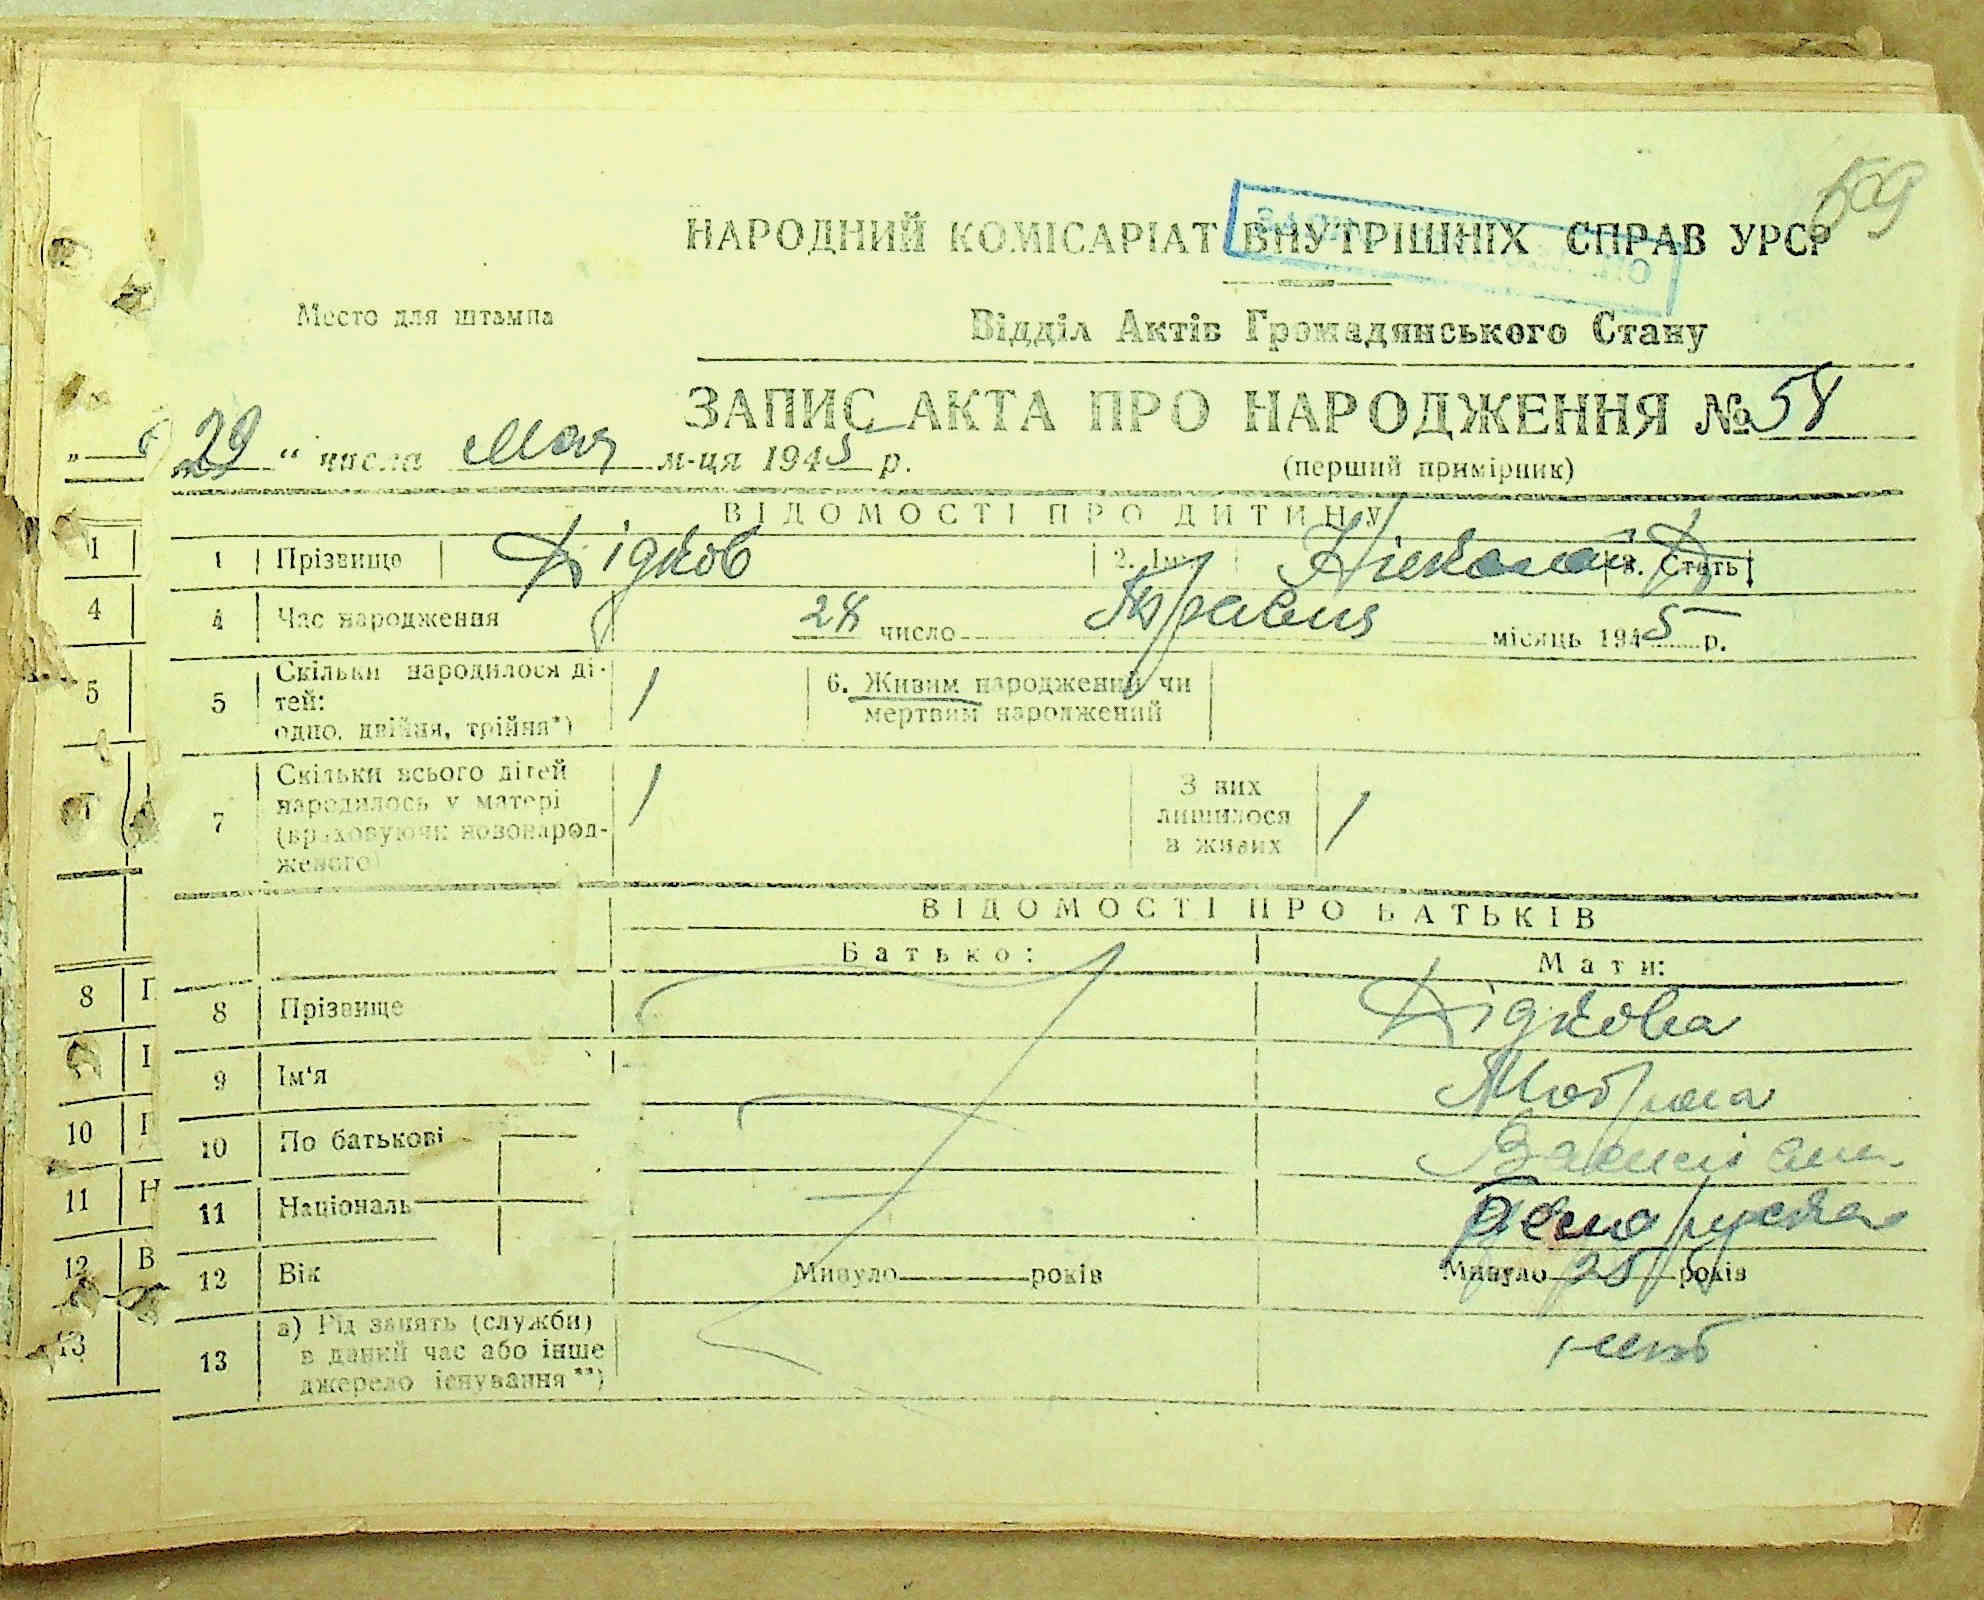 509
НАРОДНИЙ КОМІСАРІАТ ВНУТРІШНІХ СПРАВ УРСР
Место для штампа
Відділ Актів Громадянського Стану
ЗАПИС АКТА ПРО НАРОДЖЕННЯ № 54
"29" числа Мая м-ця 1945 р.
(перший примірник)
ВІДОМОСТІ ПРО ДИТИНУ
1 Прізвище Дідков 2. Ім'я Ніколай 3. Стать
4 Час народження 28 число Травня місяць 1945 р.
5 Скільки народилося ді-
тей:
одно, двійня, трійня*) 1
6. Живим народжений чи
мертвим народжений
7 Скільки всього дітей
народилось у матері
(враховуючи новонарод-
женого) 1
З них
лишилося
в живих 1
ВІДОМОСТІ ПРО БАТЬКІВ
Батько: Мати:
8 Прізвище Дідкова
9 Ім'я Мотрона
10 По батькові
11 Національ Белоруска
12 Вік Минуло років Минуло 25 років
13 а) Рід занять (служби)
в даний час або інше
джерело існування**)
1
4
5
8 П
І
10 П
11 Н
12 В
13